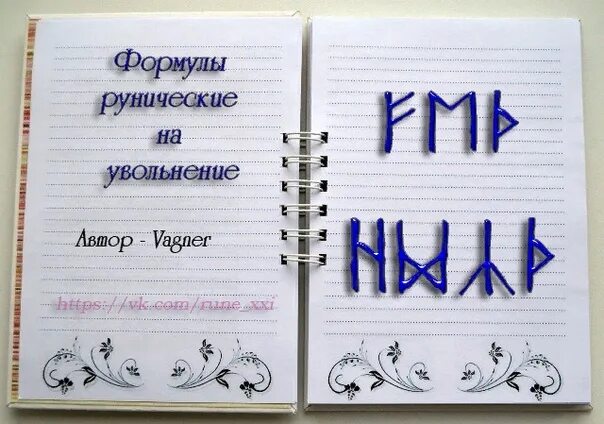 Формулы
рунические
на
увольнение
Автор - Vagner
https://vk.com/rune_xxi
ᚠ ᚦ
ᚺ ᛞ ᛦ ᚦ